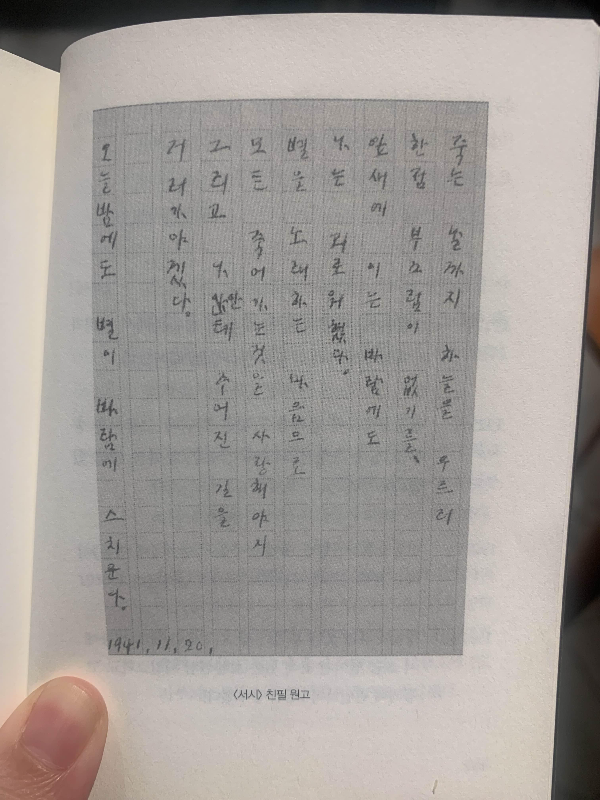 죽는 날까지 하늘을 우르러
한점 부끄럼이 없기를、
잎새에 이는 바람에도
나는 괴로워했다.
별을 노래하는 마음으로
모든 죽어가는것을 사랑해야지
그리고 나안테 주어진 길을
거러가야겠다.
오늘밤에도 별이 바람에 스치운다.
1941, 11, 20,
〈서시〉 친필 원고